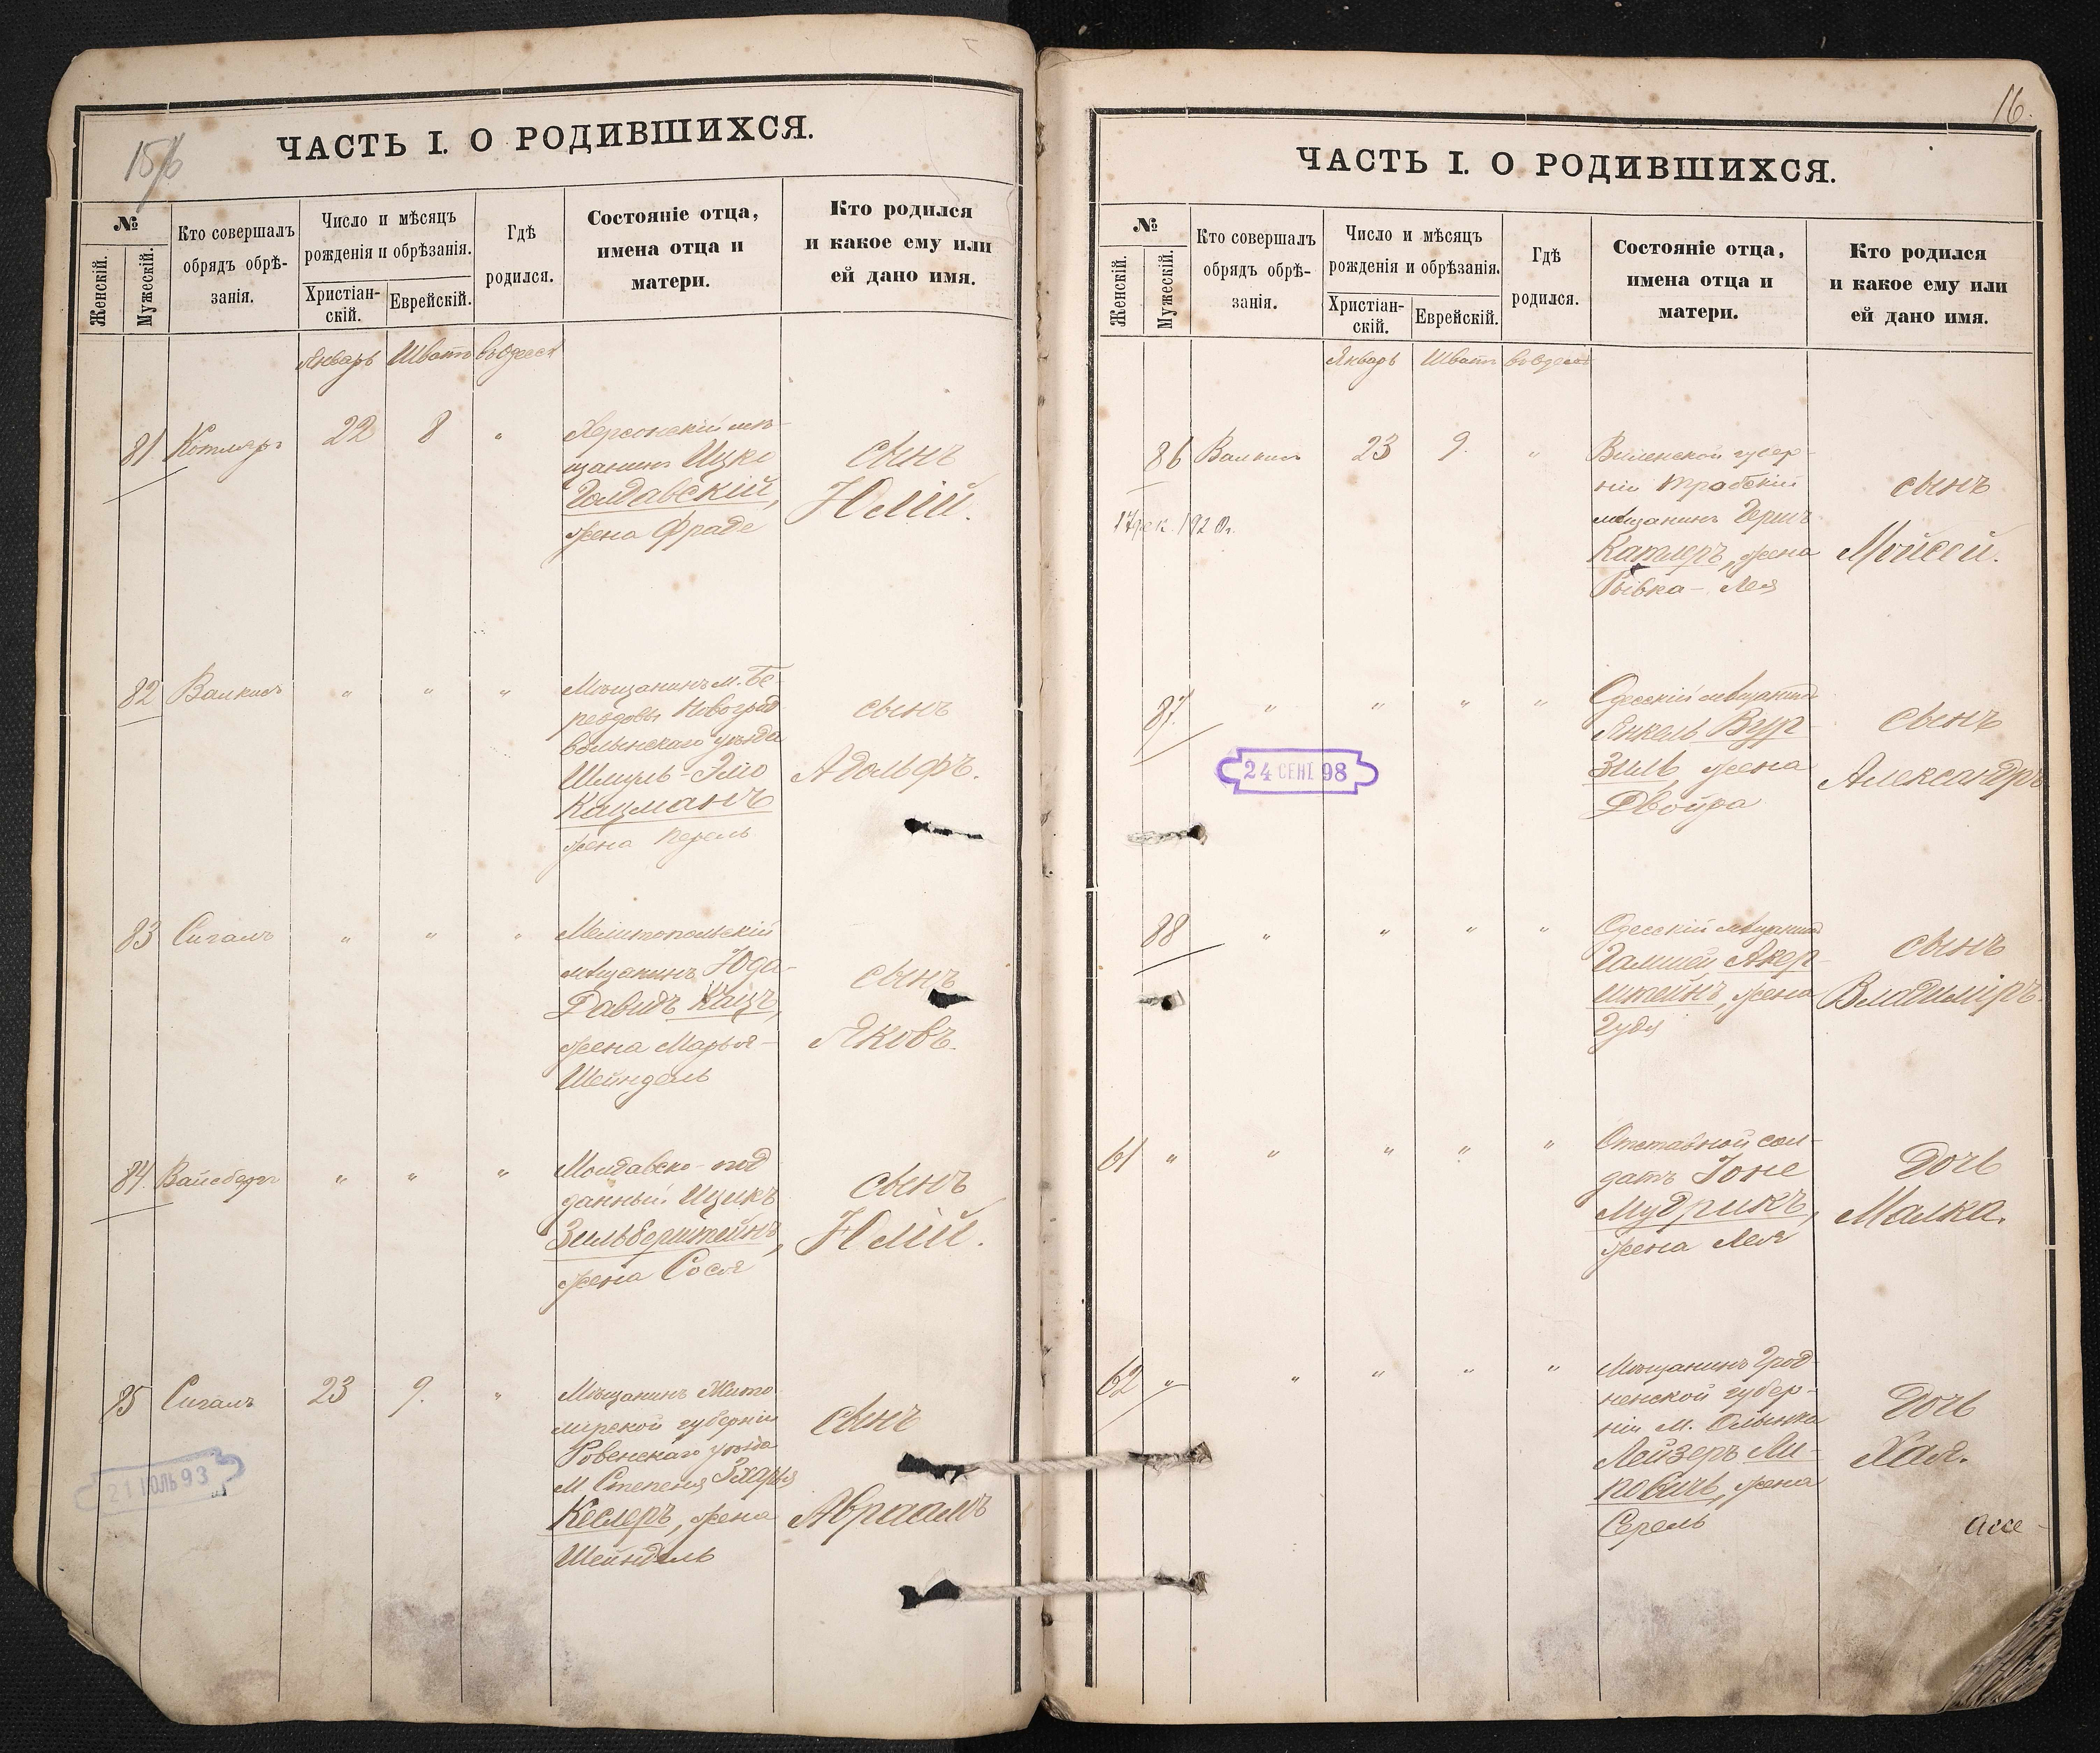 ЧАСТЬ I. О РОДИВШИХСЯ.
№
Женскій.
Мужескій.
Кто совершалъ
обрядъ обрѣ-
занія.
Число и мѣсяцъ
рожденія и обрѣзанія.
Христіан-
скій.
Еврейскій.
Гдѣ
родился.
Состояніе отца,
имена отца и
матери.
Кто родился
и какое ему или
ей дано имя.
Январь Шватъ въ Одессѣ
81 Котляръ 22 8 "
Херсонскій мѣ-
щанинъ Ицко
Голдавскій,
жена Фраде
сынъ
Юлій.
82 Валкисъ " " "
Мѣщанинъ м. Бе-
рездовы Новоград
волынскаго уѣзда
Шмуль-Эліо
Кацманъ
жена Перель
сынъ
Адольфъ.
83 Сигалъ " " "
Мелитопольскій
мѣщанинъ Юда-
Давидъ Кацъ,
жена Марья-
Шейндель
сынъ
Яковъ.
84. Вайсбергъ " " "
Молдавско-под
данный Ицикъ
Зильберштейнъ,
жена Сося
сынъ
Юлій.
85 Сигалъ 23 9. "
Мѣщанинъ Жито
мірской губерніи
Ровенскаго уѣзда
М Степеня Захарья
Кеслеръ, жена
Шейндель
сынъ
Абраамъ
21 ІЮЛЬ 93
16.
ЧАСТЬ I. О РОДИВШИХСЯ.
№
Женскій.
Мужескій.
Кто совершалъ
обрядъ обрѣ-
занія.
Число и мѣсяцъ
рожденія и обрѣзанія.
Христіан-
скій.
Еврейскій.
Гдѣ
родился.
Состояніе отца,
имена отца и
матери.
Кто родился
и какое ему или
ей дано имя.
Январь Шватъ въ Одессѣ
86 Валкисъ 23 9. "
17 дек. 1920 г.
Виленской губер-
ніи Трабскій
мѣщанинъ Гершъ
Катлеръ, жена
Рывка-Лея
сынъ
Мойсей.
87. " " " "
24 СЕНТ. 98
Одесскій мѣщанинъ
Янкель Вур-
зиль, жена
Двойра
сынъ
Александръ
88 " " " "
Одесскій мѣщанинъ
Гамшей Акер-
штейнъ, жена
Гудя
сынъ
Владиміръ.
61 " " " " "
Отставной сол-
датъ Іоне
Мудрикъ,
жена Лея
дочь
Малка.
62 " " " " "
Мѣщанинъ Грод-
ненской губер-
ніи м.
Лейзеръ Ли-
повичъ, жена
Серель
дочь
Хая.